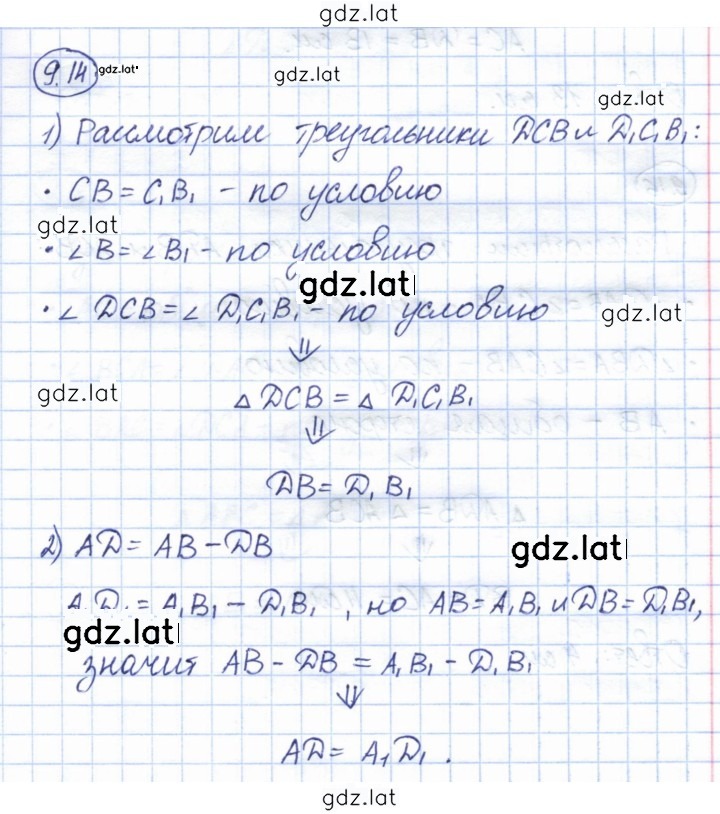 gdz.lat
9.14 gdz.lat
gdz.lat
gdz.lat
1) Рассмотрим треугольники DCB и D₁C₁B₁:
• CB = C₁B₁ – по условию
gdz.lat
• ∠B = ∠B₁ – по условию
gdz.lat
• ∠DCB = ∠D₁C₁B₁ – по условию
gdz.lat
⇓
gdz.lat
△DCB = △D₁C₁B₁
⇓
DB = D₁B₁
2) AD = AB – DB
gdz.lat
A₁D₁ = A₁B₁ – D₁B₁, но AB = A₁B₁ и DB = D₁B₁,
gdz.lat
значит AB – DB = A₁B₁ – D₁B₁
⇓
AD = A₁D₁.
gdz.lat